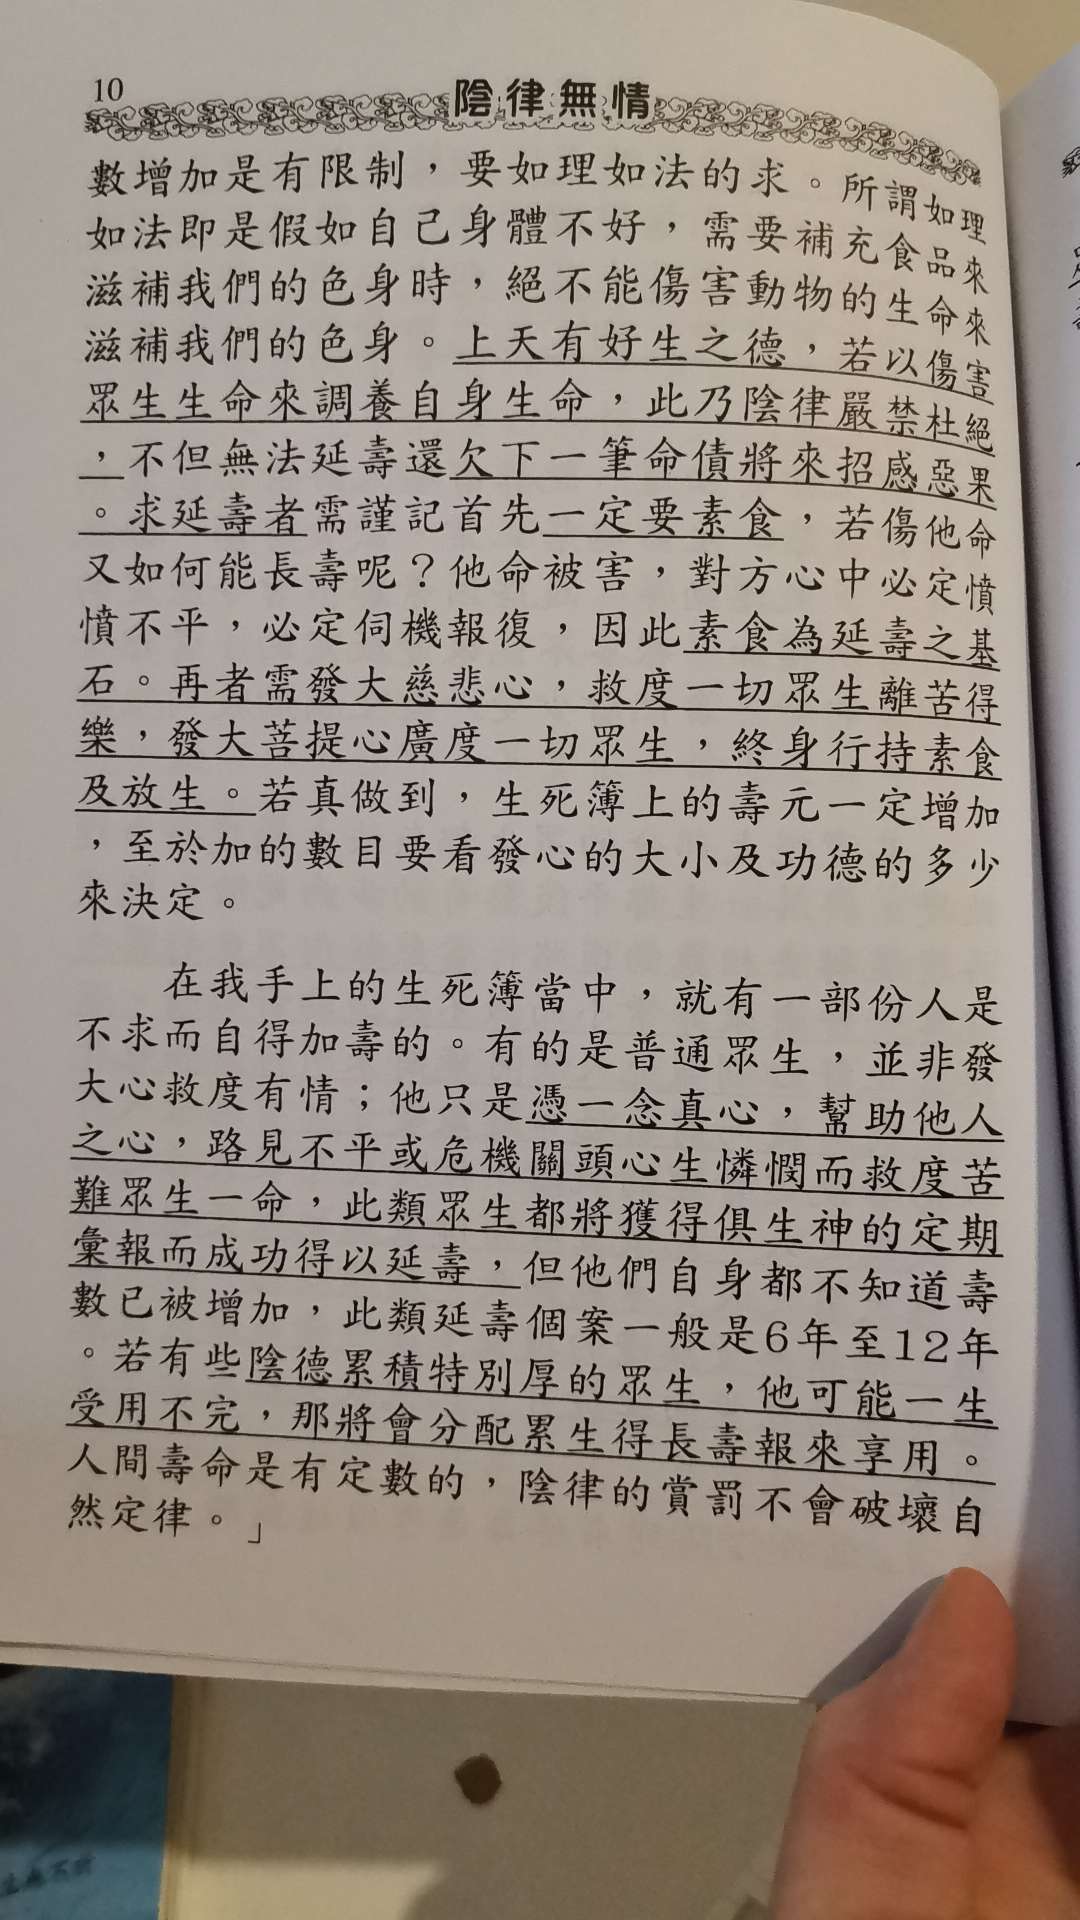 10
陰律無情
數增加是有限制，要如理如法的求。所謂如理
如法即是假如自己身體不好，需要補充食品來
滋補我們的色身時，絕不能傷害動物的生命來
滋補我們的色身。上天有好生之德，若以傷害
眾生生命來調養自身生命，此乃陰律嚴禁杜絕
，不但無法延壽還欠下一筆命債將來招感惡果
。求延壽者需謹記首先一定要素食，若傷他命
又如何能長壽呢？他命被害，對方心中必定憤
憤不平，必定伺機報復，因此素食為延壽之基
石。再者需發大慈悲心，救度一切眾生離苦得
樂，發大菩提心廣度一切眾生，終身行持素食
及放生。若真做到，生死簿上的壽元一定增加
，至於加的數目要看發心的大小及功德的多少
來決定。
在我手上的生死簿當中，就有一部份人是
不求而自得加壽的。有的是普通眾生，並非發
大心救度有情；他只是憑一念真心，幫助他人
之心，路見不平或危機關頭心生憐憫而救度苦
難眾生一命，此類眾生都將獲得俱生神的定期
彙報而成功得以延壽，但他們自身都不知道壽
數已被增加，此類延壽個案一般是6年至12年
。若有些陰德累積特別厚的眾生，他可能一生
受用不完，那將會分配累生得長壽報來享用。
人間壽命是有定數的，陰律的賞罰不會破壞自
然定律。」